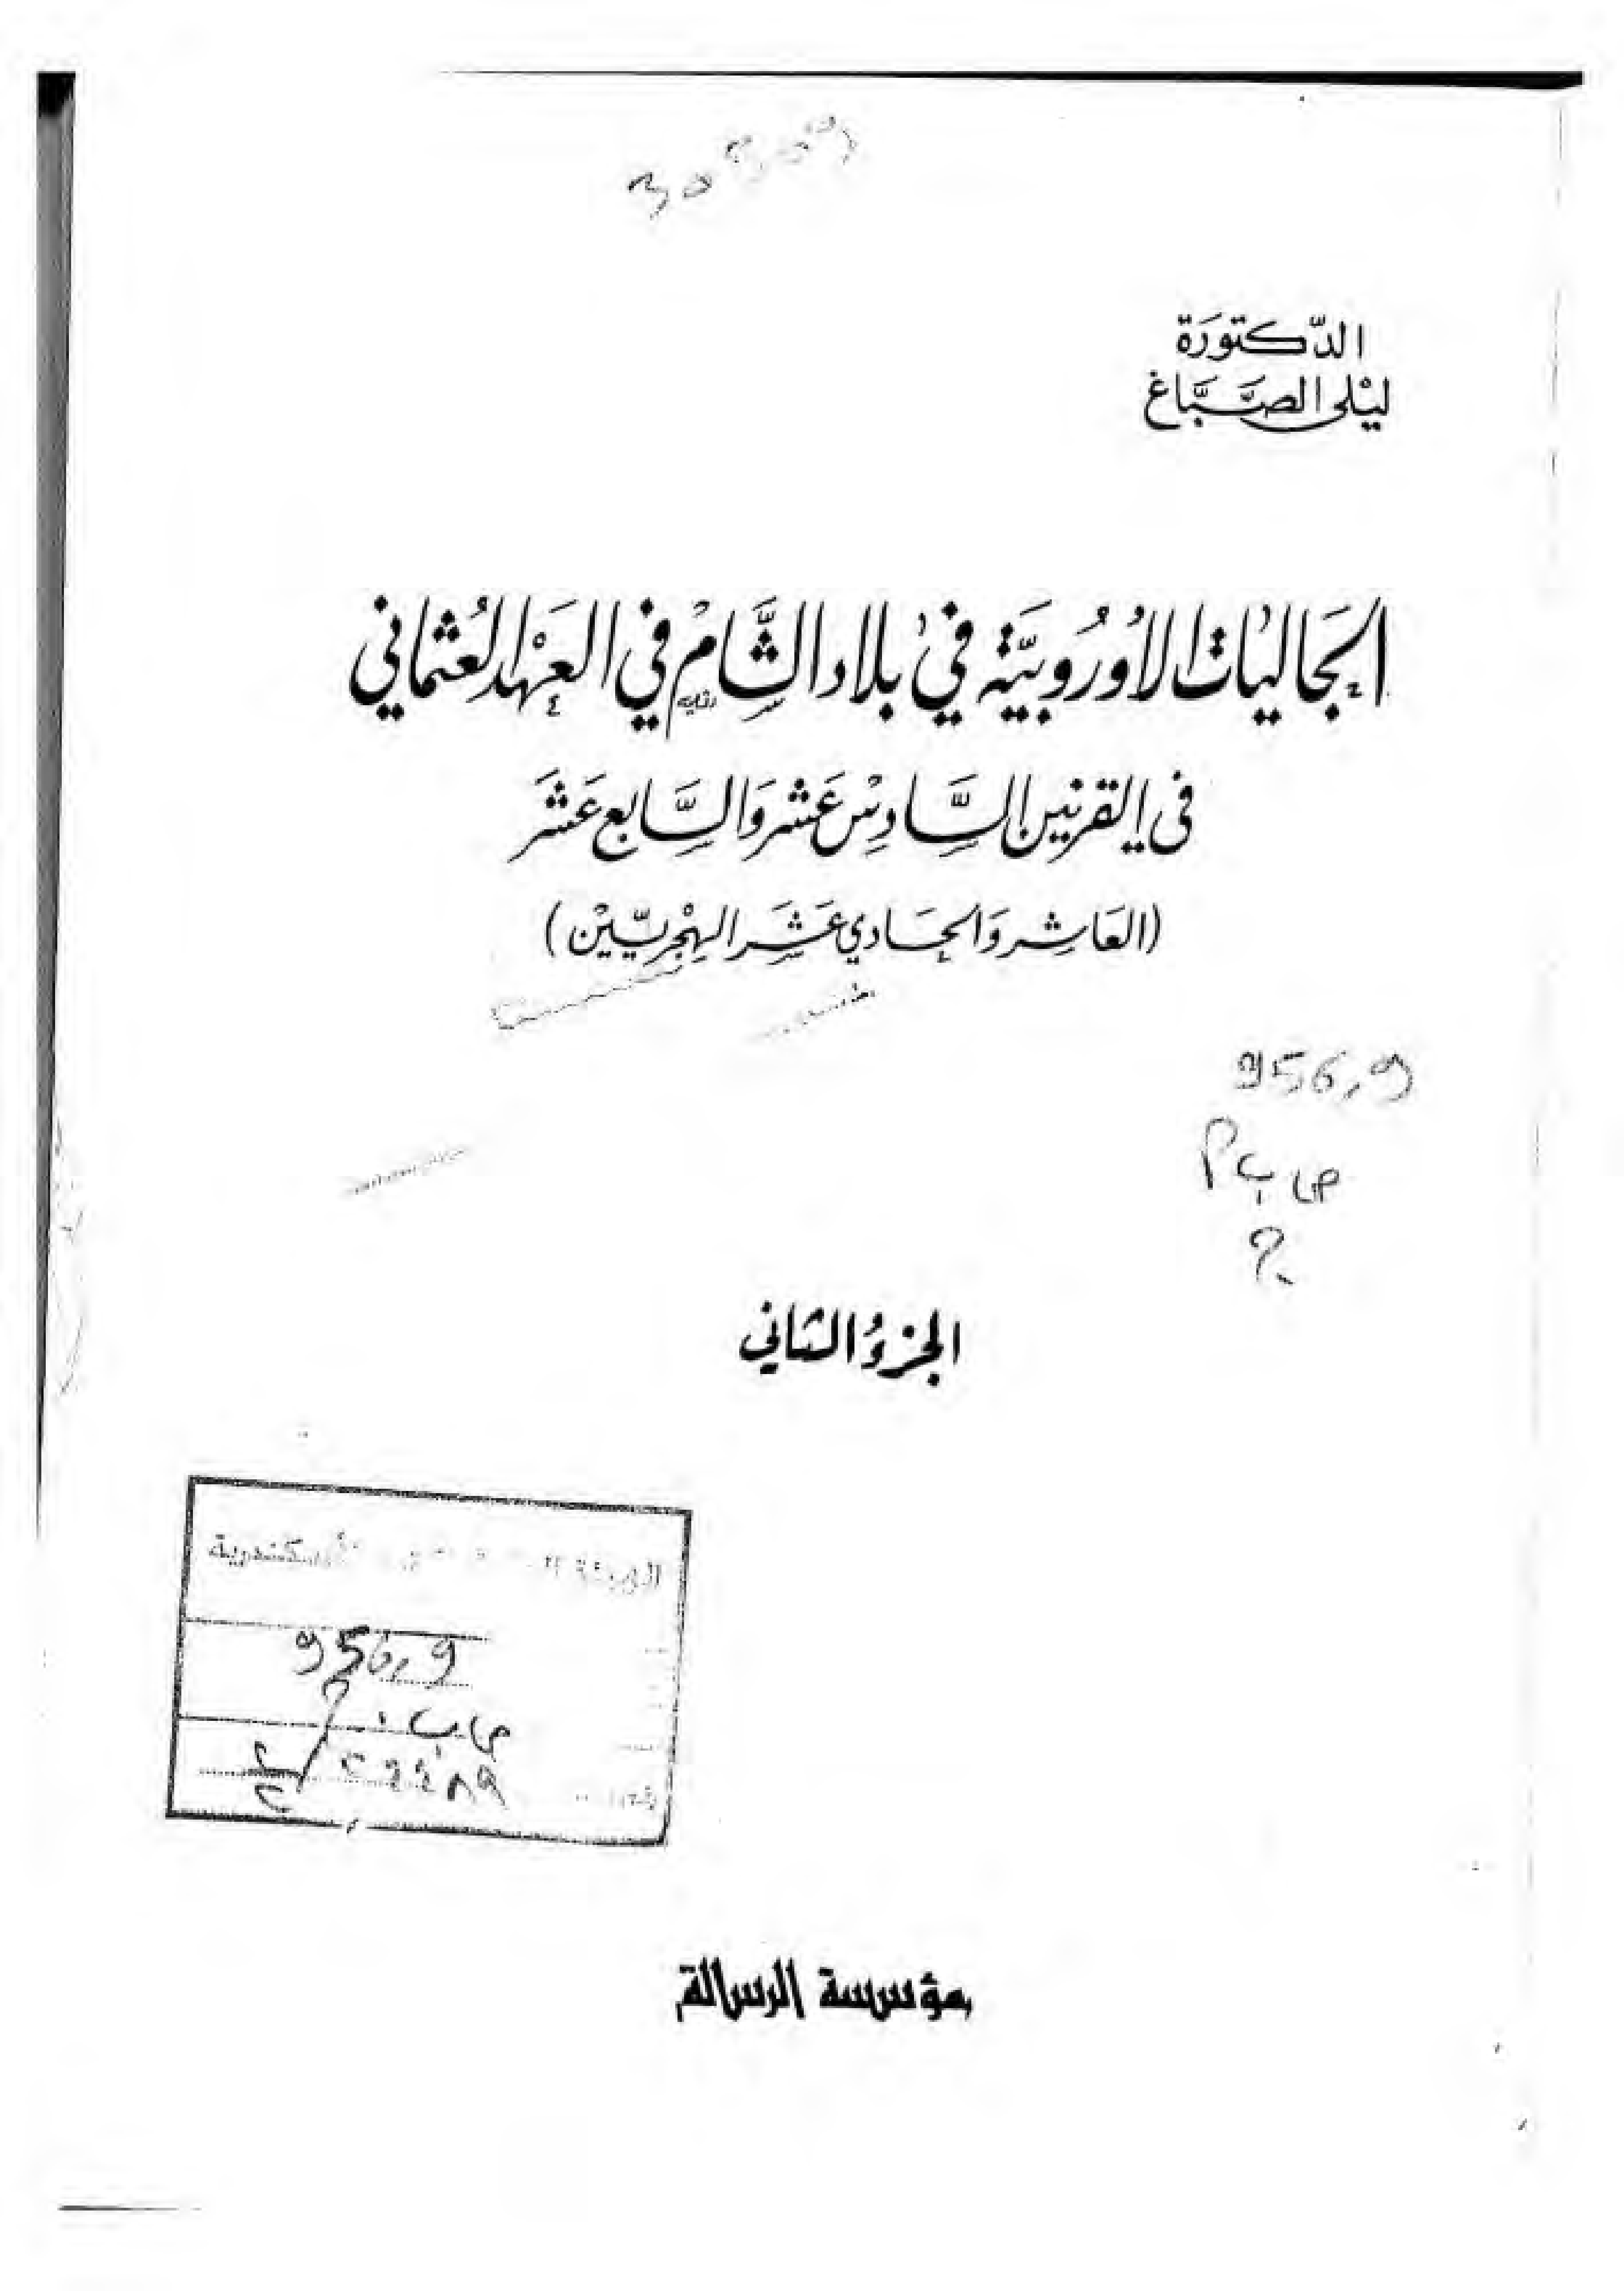 الدكتورة
ليلى الصباغ
الجاليات الأوروبية في بلاد الشام في العهد العثماني
في القرنين السادس عشر والسابع عشر
(العاشر والحادي عشر الهجريين)
956,9
ص ب
الجزء الثاني
الأسكندرية
956,9
ص ب
مؤسسة الرسالة